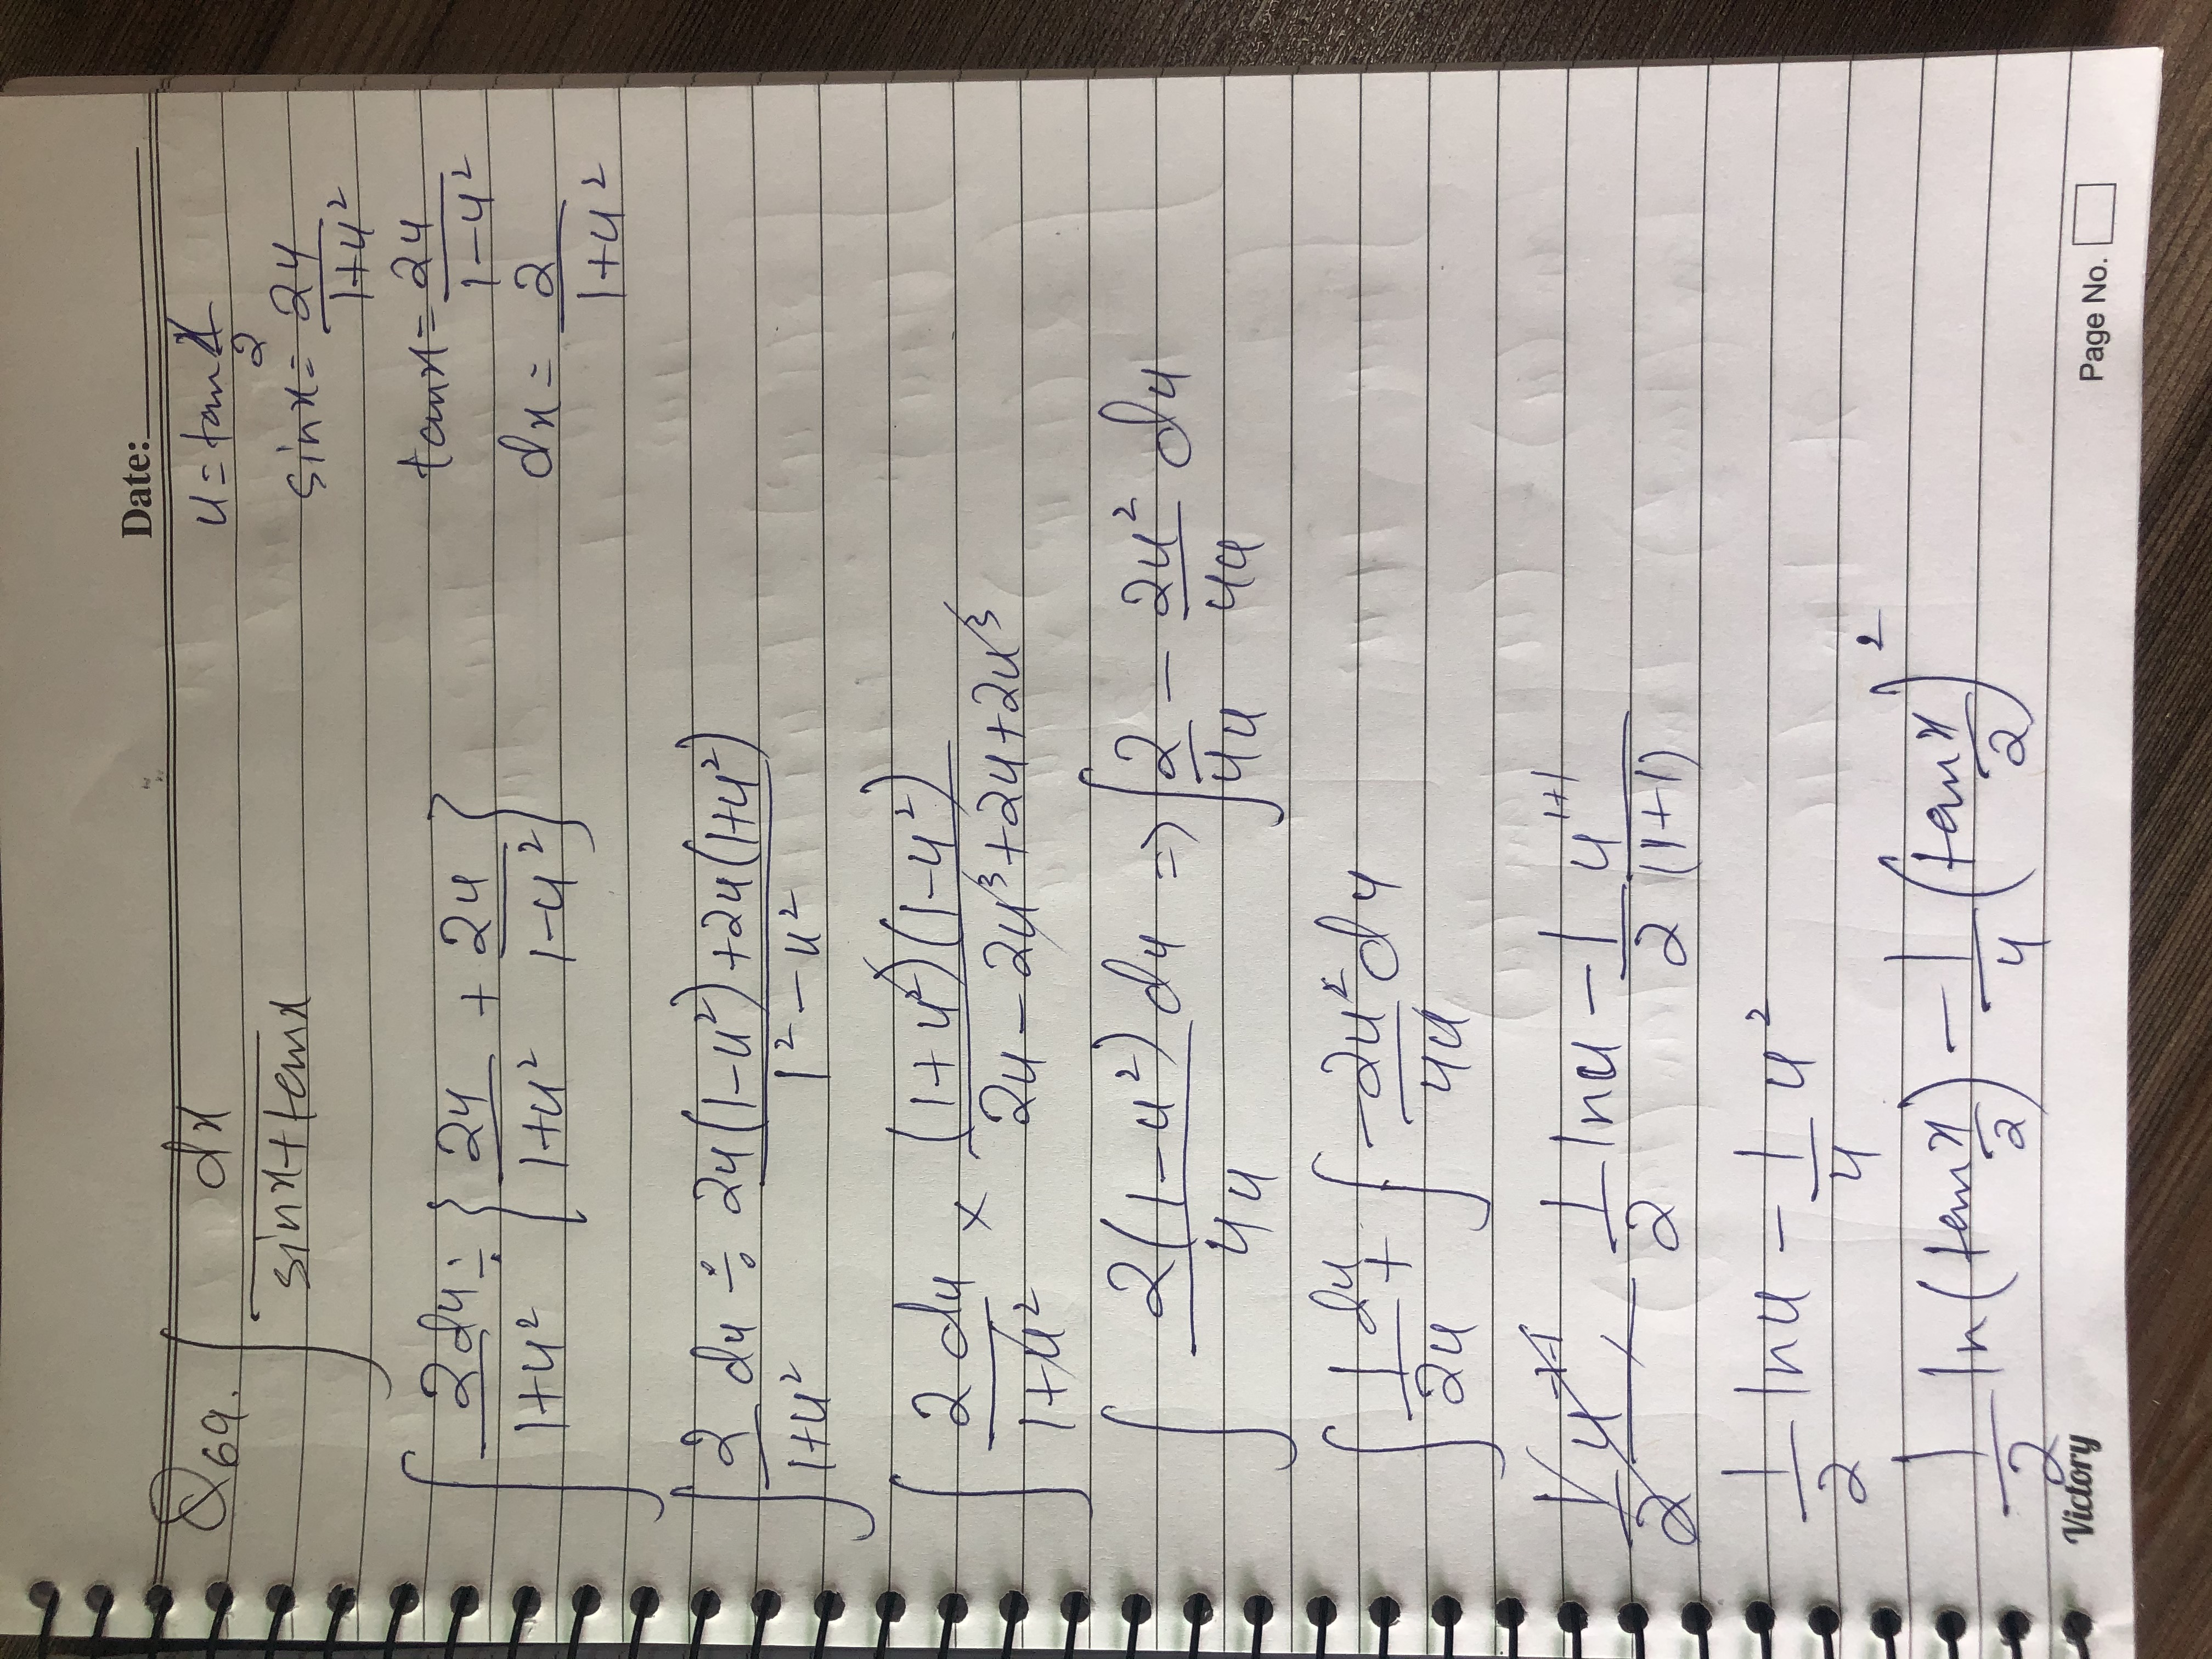 Date:
Q69. ∫ dx / (sinx+tanx)
u = tan x/2
sinx = 2u / (1+u²)
tanx = 2u / (1-u²)
dx = 2 / (1+u²)
∫ 2du / (1+u²) ÷ { 2u / (1+u²) + 2u / (1-u²) }
∫ 2 / (1+u²) du ÷ (2u(1-u²)+2u(1+u²)) / (1²-u²)
∫ 2 du / (1+u²) × (1+u²)(1-u²) / (2u-2u³+2u+2u³)
∫ 2(1-u²) / 4u du ⇒ ∫ 2/4u - 2u²/4u du
∫ 1/2u du + ∫ -2u²/4u du
1/2 u^(-1-1) 1/2 lnu - 1/2 u^(1+1) / (1+1)
1/2 lnu - 1/4 u²
1/2 ln(tan x/2) - 1/4 (tan x/2)²
Victory
Page No.